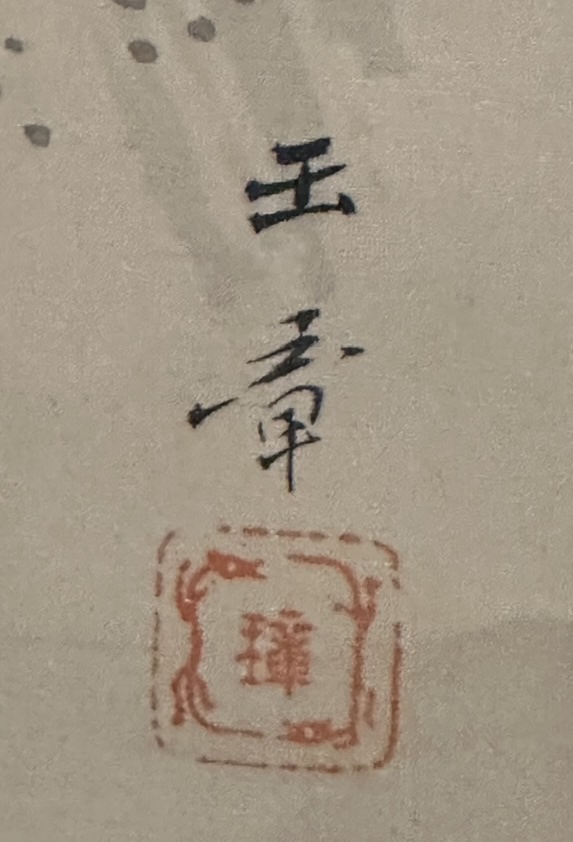 玉
章
璋